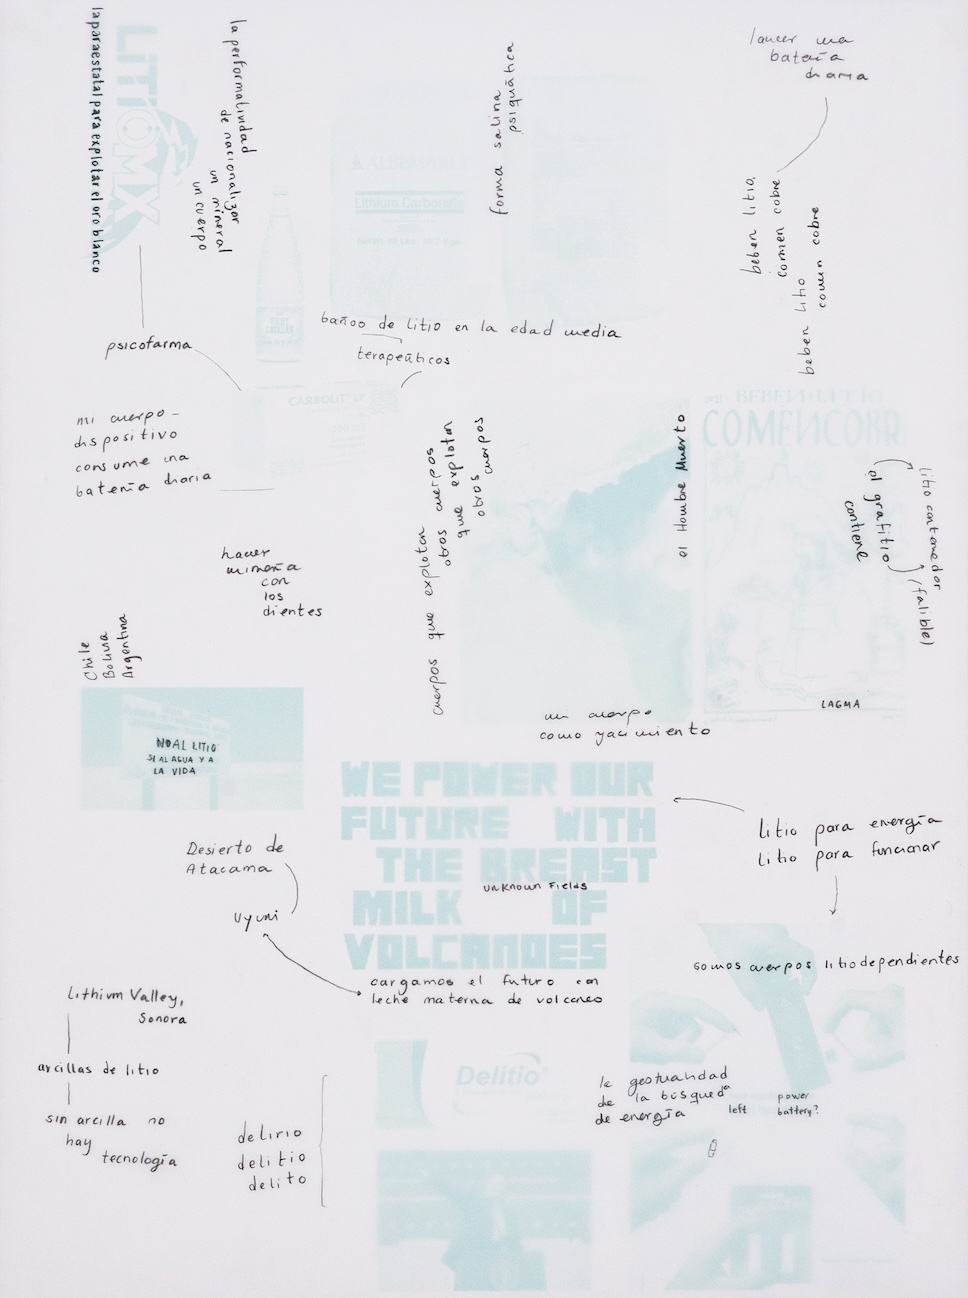 la paraestatal para explotar el oro blanco
LITIOMX
la performatividad
de nacionalizar
un mineral
un cuerpo
forma salina
psiquiátrica
lancer una
batería
diaria
beben litio,
comen cobre
beben litio
comen cobre
ALBEMARLE
Lithium Carbonate
baños de litio en la edad media
terapeúticos
psicofarma
CARBOLIT LP
mi cuerpo –
dispositivo
consume una
batería diaria
cuerpos que explotan
otros cuerpos
que explotan
otros cuerpos
el Hombre Muerto
BEBEN LITIO
COMEN COBR
litio contenedor
el grafitio
contiene
(falible)
LAGMA
hacer
minería
con
los
dientes
Chile
Bolivia
Argentina
NO AL LITIO
SI AL AGUA Y A
LA VIDA
un cuerpo
como yacimiento
WE POWER OUR
FUTURE WITH
THE BREAST
MILK OF
VOLCANOES
UNKNOWN FIELDS
litio para energía
litio para funcionar
Desierto de
Atacama
Uyuni
somos cuerpos litiodependientes
cargamos el futuro con
leche materna de volcanes
Lithium Valley,
Sonora
arcillas de litio
sin arcilla no
hay
tecnología
Delitio
delirio
delitio
delito
la gestualidad
de la búsqueda
de energía
left
power
battery?